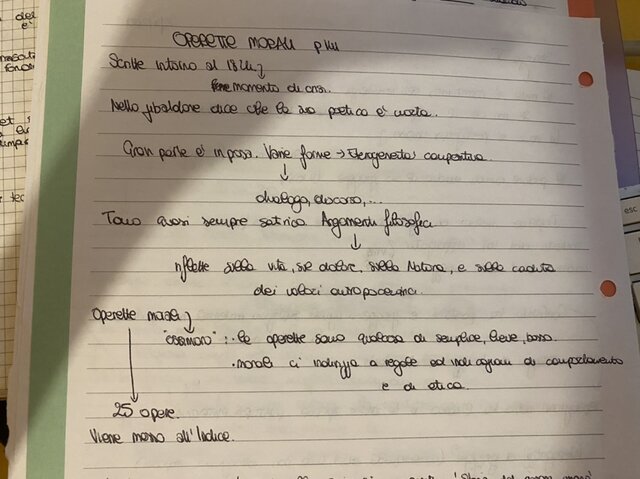 OPERETTE MORALI
Scritte intorno al 1824
momento di crisi.
Nello zibaldone dice che la sua poetica è morta.
Gran parte è in prosa. Varie forme → Eterogeneità compositiva
↓
dialogo, discorso, ...
Tono quasi sempre satirico. Argomenti filosofici
↓
riflette sulla vita, sul dolore, sulla Natura, e sulla caduta
dei valori antropocentrici.
Operette morali
"ossimoro": le operette sono qualcosa di semplice, breve, basso.
• morali ci indirizza a regole ed indicazioni di comportamento
e di etica.
25 opere.
Viene messo all'Indice.
esc